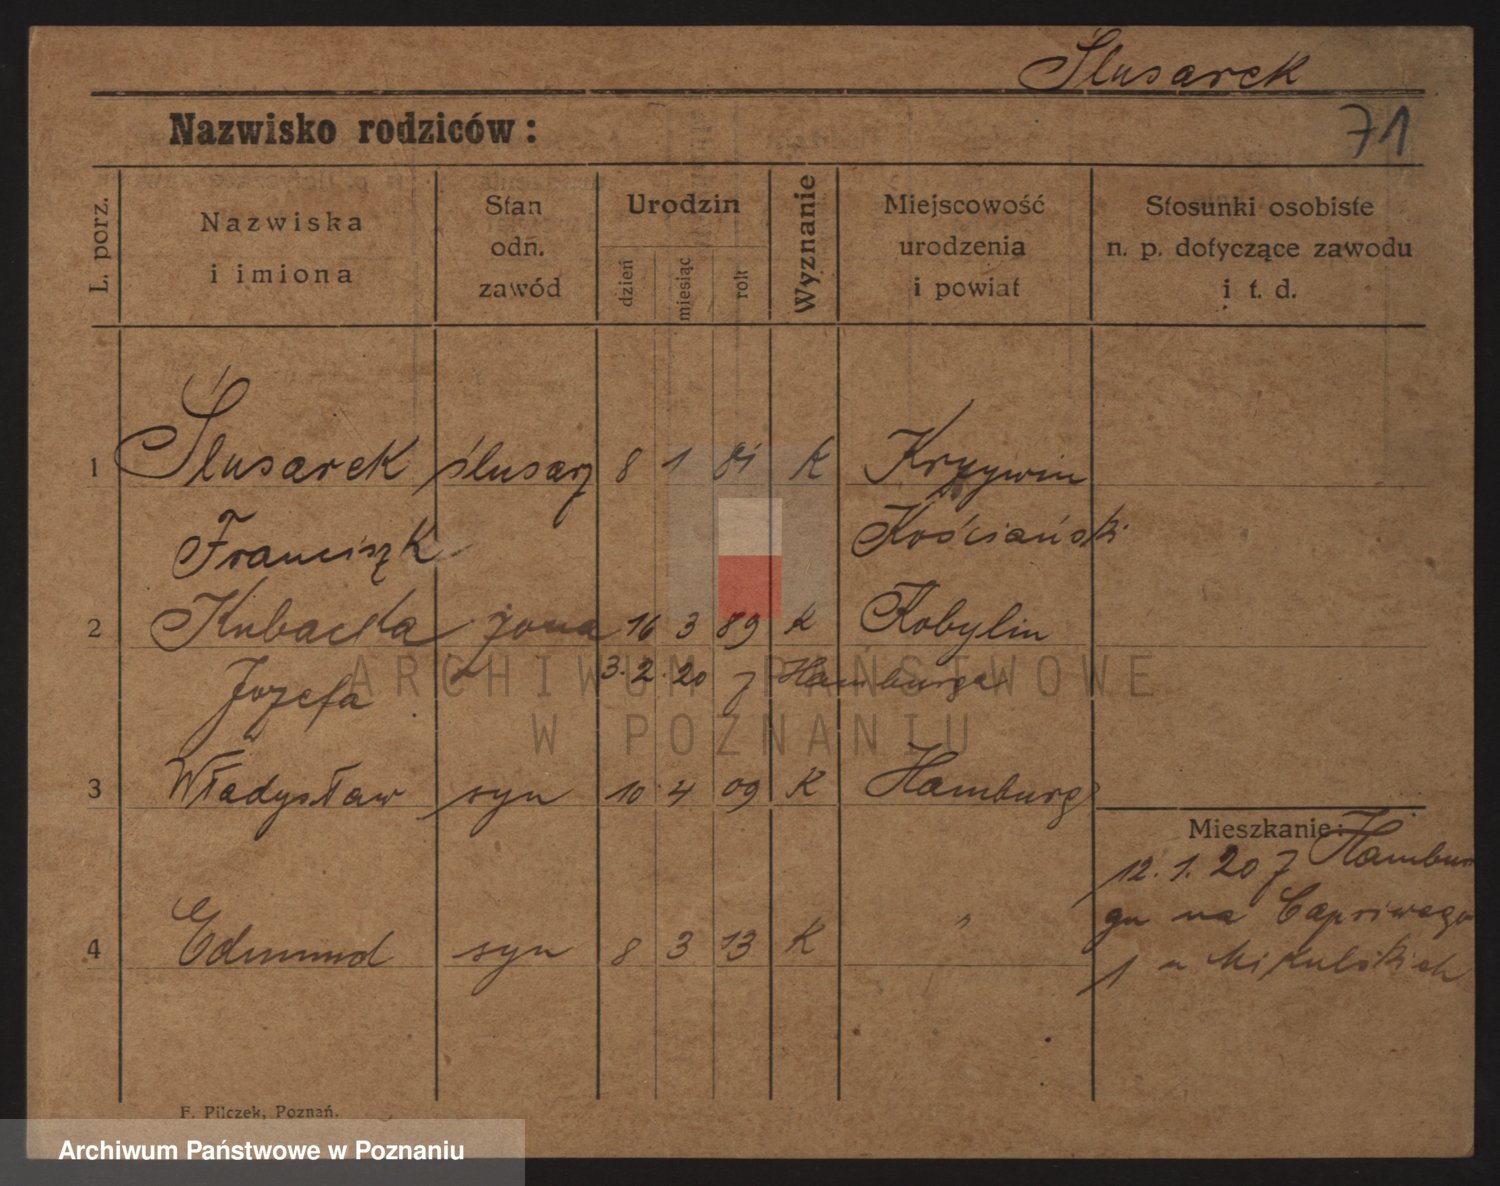 Ślusarek
71
Nazwisko rodziców:
L. porz.
Nazwiska
i imiona
Stan
odn.
zawód
Urodzin
dzień
miesiąc
rok
Wyznanie
Miejscowość
urodzenia
i powiat
Stosunki osobiste
n. p. dotyczące zawodu
i t. d.
1 Ślusarek ślusarz 8 1 81 K Krzywin
Franciszk Kościański
2 Kubacka żona 16 3 89 K Kobylin
Józefa 3. 2. 20 z Hamburga
3 Władysław syn 10 4 09 K Hamburg
Mieszkanie:
12. 1. 20 z Hambur
gu na
4 Edmund syn 8 3 13 K "
1 u Mikulskich
F. Pilczek, Poznań.
ARCHIWUM PAŃSTWOWE
W POZNANIU
Archiwum Państwowe w Poznaniu